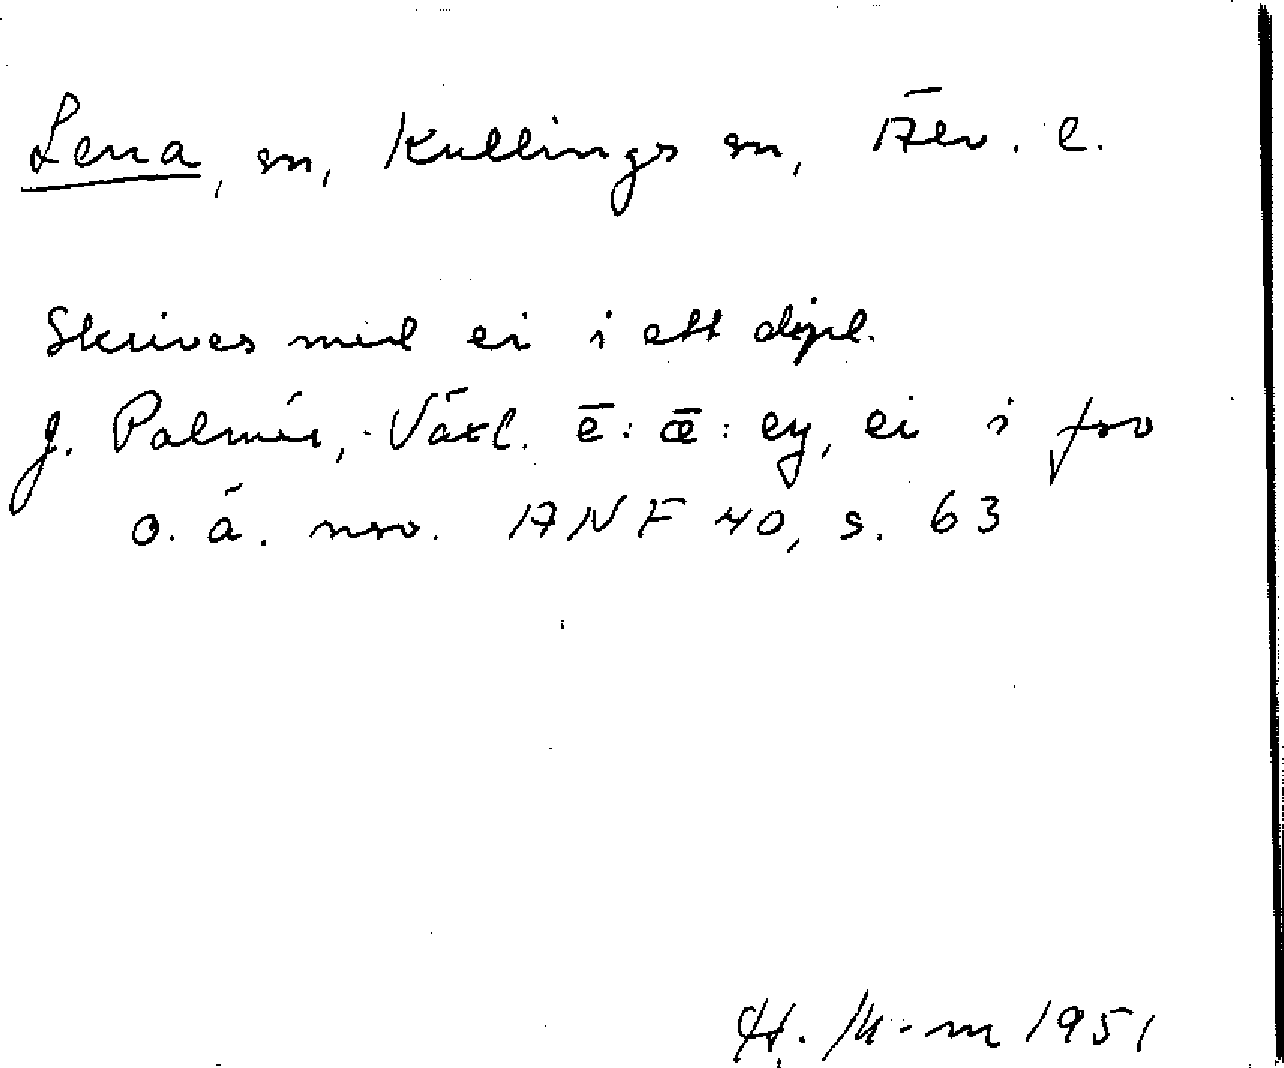 Lena, sn, Kullings sn, Älv. l.
Skrives med ei i ett dipl.
J. Palmér, Växl. ē: œ̄: ey, ei i fsv
o. ä. nsv. ANF 40, s. 63
H. M-m 1951